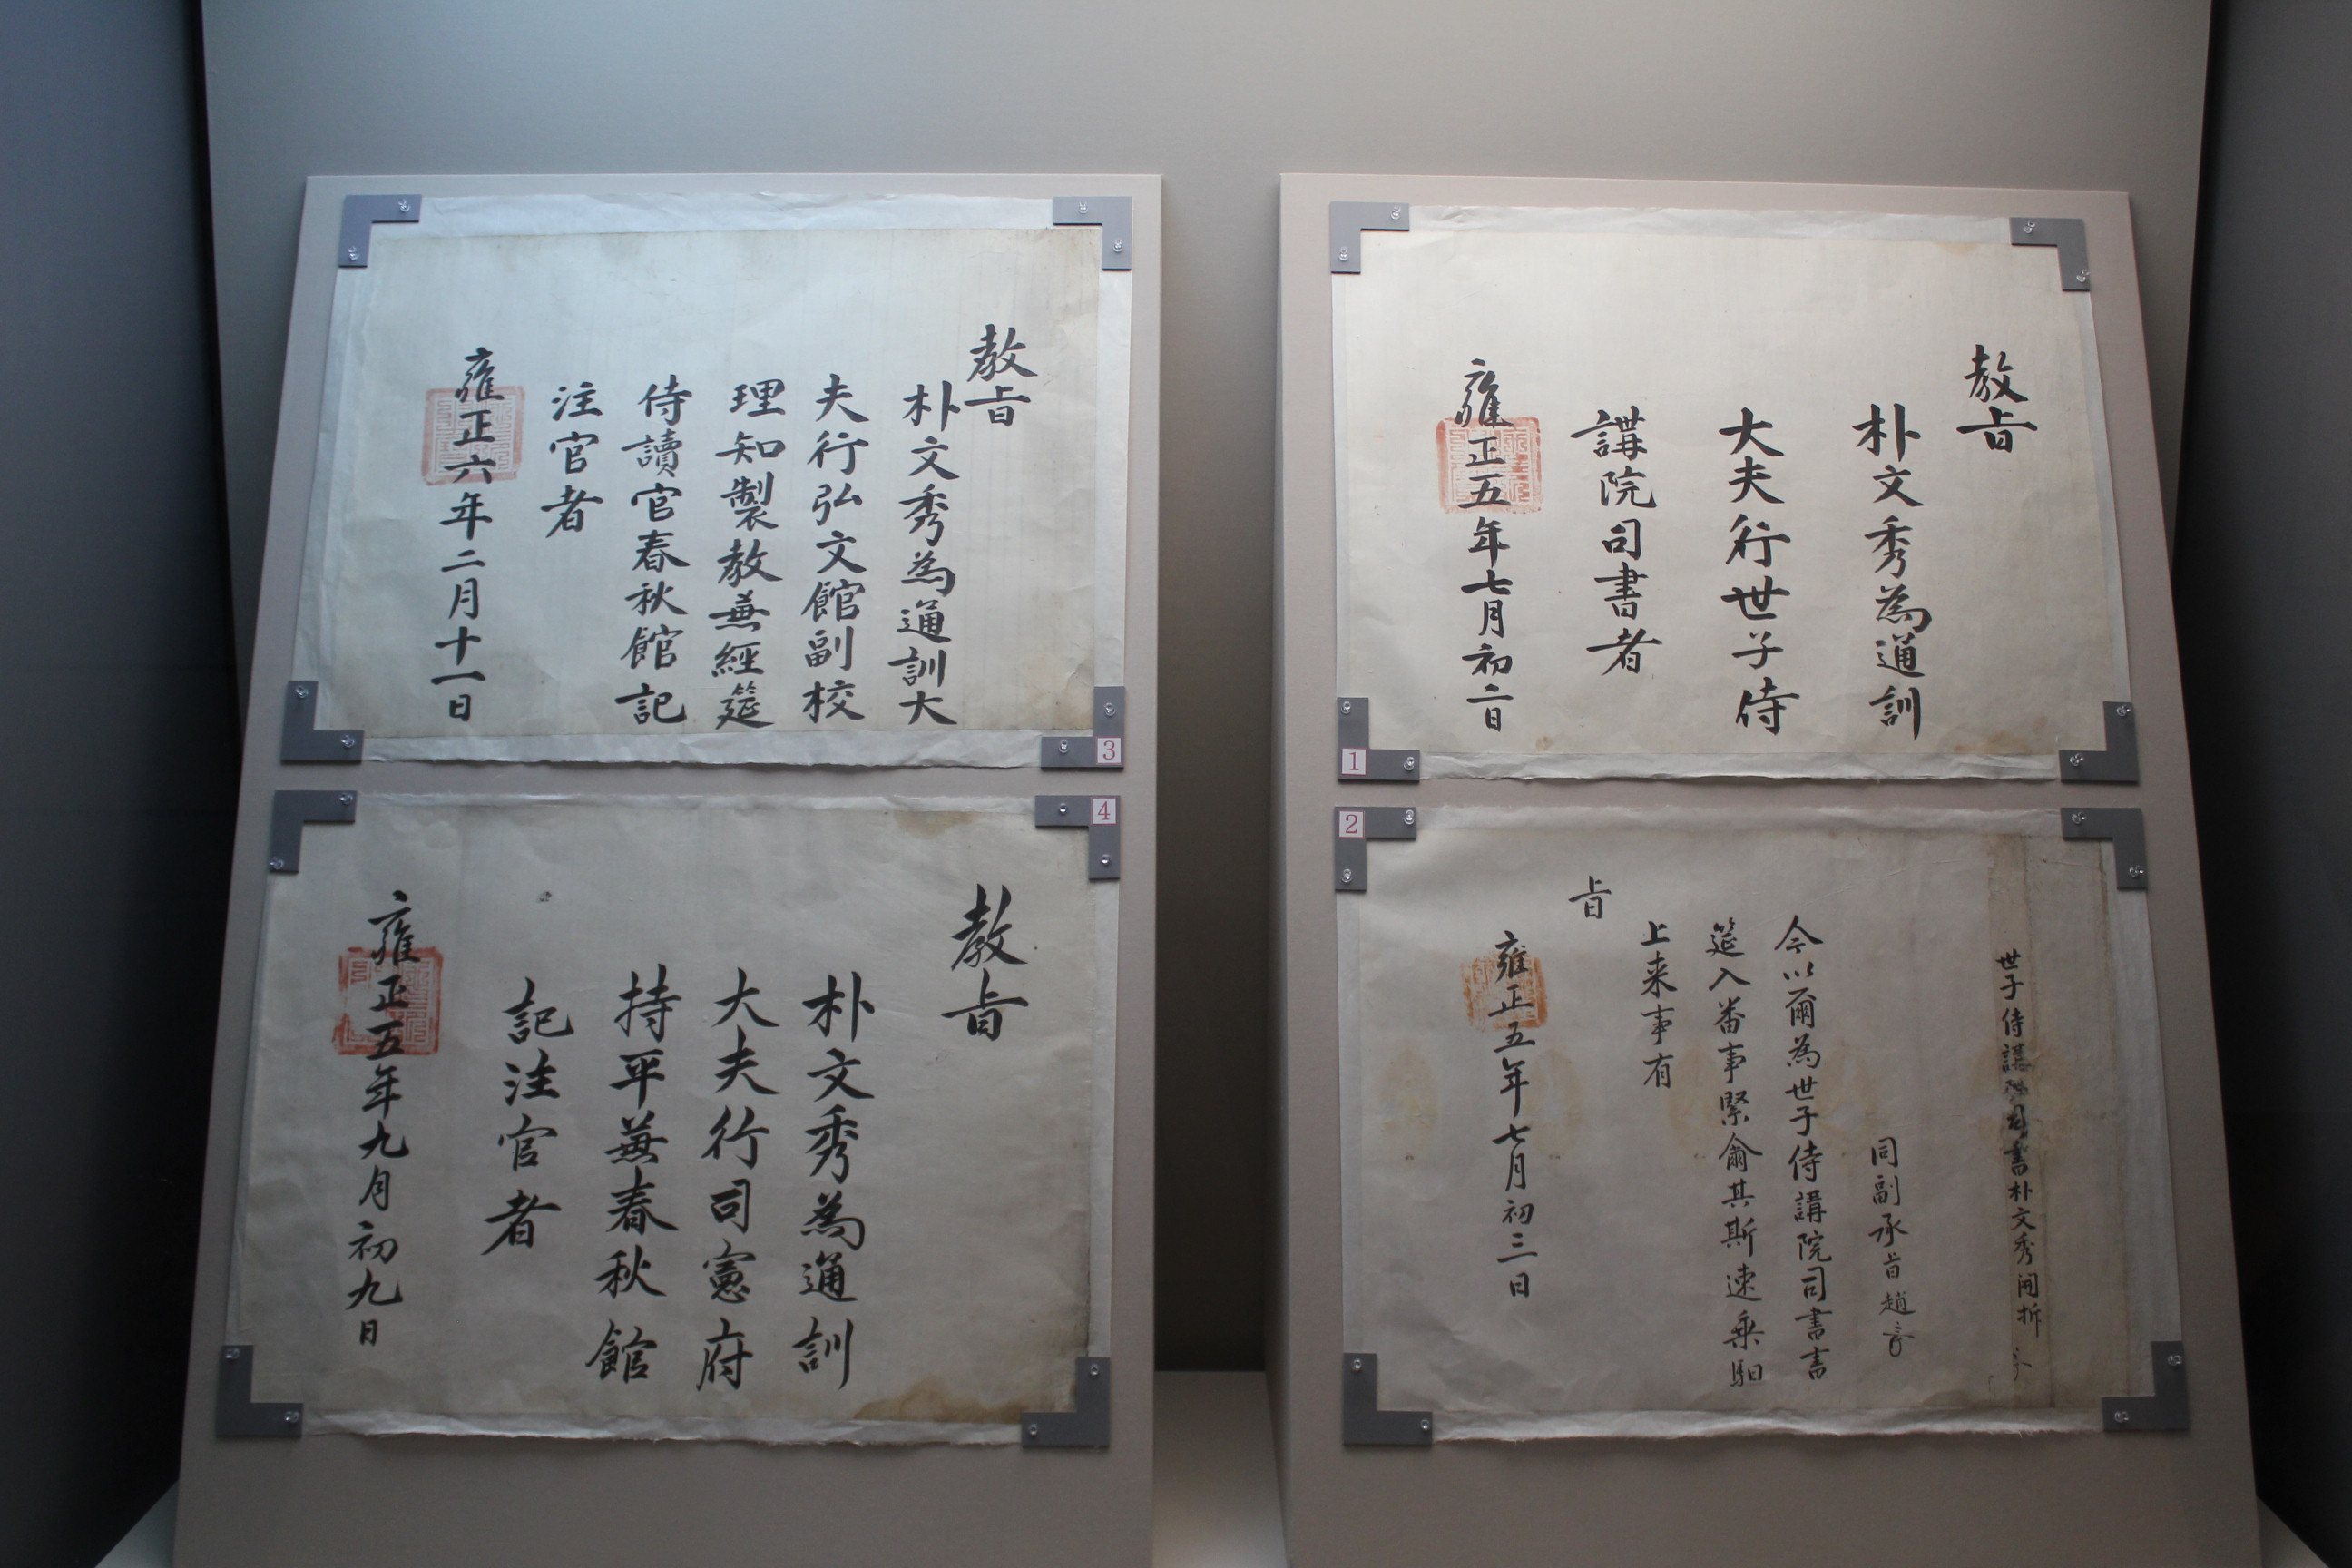 1
教旨
朴文秀為通訓
大夫行世子侍
講院司書者
雍正五年七月初二日
2
世子侍講院司書朴文秀開拆
同副承旨趙
今以爾為世子侍講院司書書
筵入番事緊爾其斯速乘馹
上来事有
旨
雍正五年七月初三日
3
教旨
朴文秀為通訓大
夫行弘文館副校
理知製教兼經筵
侍讀官春秋館記
注官者
雍正六年二月十一日
4
教旨
朴文秀為通訓
大夫行司憲府
持平兼春秋館
記注官者
雍正五年九月初九日